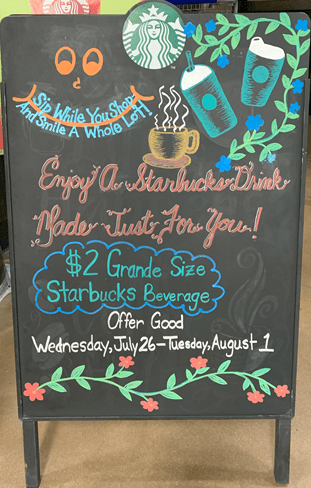 Sip While You Shop
And Smile A Whole Lot!
Enjoy A Starbucks Drink
Made Just For You!
$2 Grande Size
Starbucks Beverage
Offer Good
Wednesday, July 26-Tuesday, August 1